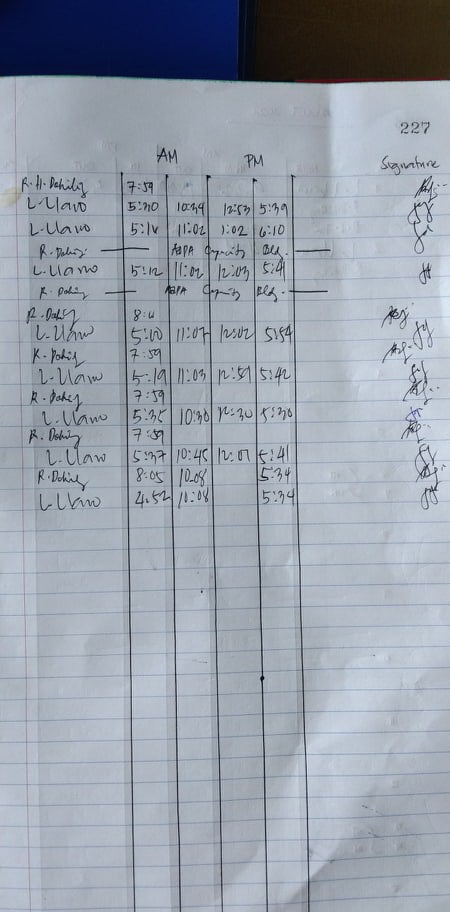 227
AM PM Signature
R.H. Dahilig 7:59
L-Llavo 5:30 10:34 12:53 5:39
L-Llavo 5:14 11:02 1:02 6:10
R. Dahilig Capacity Bldg.
L-Llavo 5:12 11:02 12:03 5:41
R. Dahilig Capacity Bldg.
R. Dahilig
L-Llavo 5:10 11:07 12:02 5:54
R. Dahilig 7:59
L-Llavo 5:19 11:03 12:59 5:42
R. Dahilig 7:59
L-Llavo 5:35 10:30 12:30 5:30
R. Dahilig 7:59
L-Llavo 5:37 10:45 12:01 5:41
R. Dahilig 8:05 10:08 5:34
L-Llavo 4:52 10:08 5:34